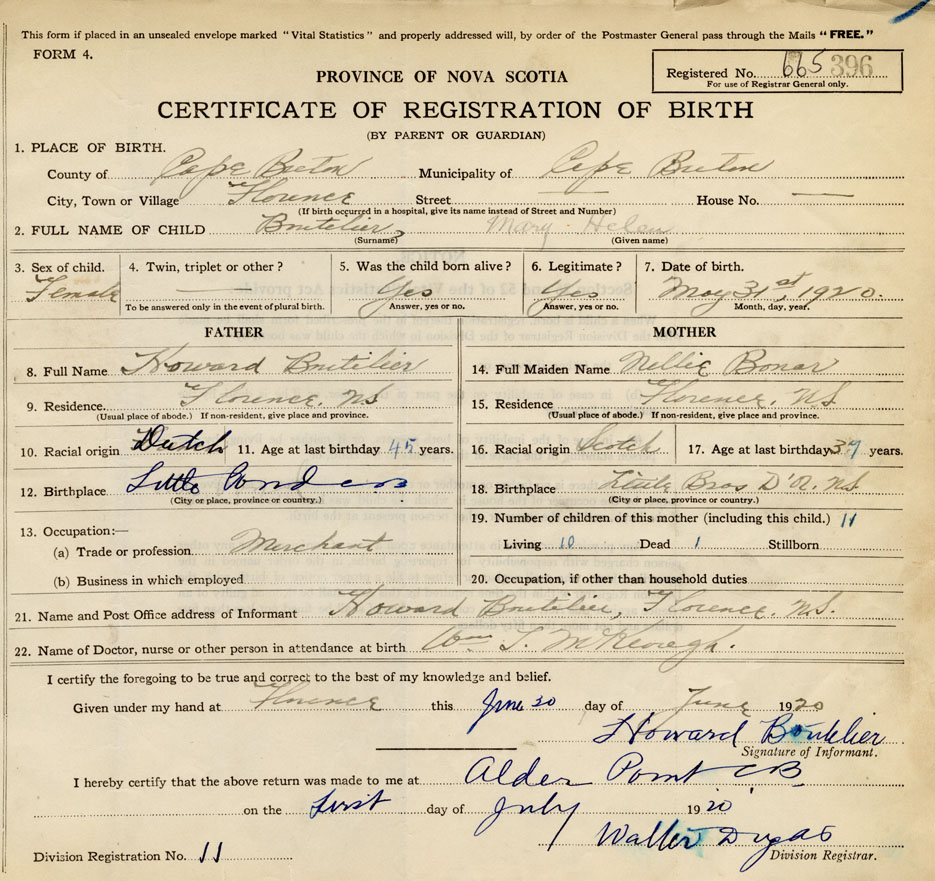 This form if placed in an unsealed envelope marked "Vital Statistics" and properly addressed will, by order of the Postmaster General pass through the Mails "FREE."
FORM 4.
Registered No. 665 396
For use of Registrar General only.
PROVINCE OF NOVA SCOTIA
CERTIFICATE OF REGISTRATION OF BIRTH
(BY PARENT OR GUARDIAN)
1. PLACE OF BIRTH.
County of Cape Breton Municipality of Cape Breton
City, Town or Village Florence Street — House No. —
(If birth occurred in a hospital, give its name instead of Street and Number)
2. FULL NAME OF CHILD Boutelier, Mary Helen
(Surname) (Given name)
3. Sex of child. 4. Twin, triplet or other? 5. Was the child born alive? 6. Legitimate? 7. Date of birth.
Female — Yes Yes May 31st, 1920.
To be answered only in the event of plural birth. Answer, yes or no. Answer, yes or no. Month, day, year.
FATHER MOTHER
8. Full Name Howard Boutelier 14. Full Maiden Name Nellie Bonar
9. Residence Florence, NS 15. Residence Florence, N.S.
(Usual place of abode.) If non-resident, give place and province. (Usual place of abode.) If non-resident, give place and province.
10. Racial origin Dutch 11. Age at last birthday 45 years. 16. Racial origin Scotch 17. Age at last birthday 37 years.
12. Birthplace Little 18. Birthplace Little Bras D'Or. N.S.
(City or place, province or country.) (City or place, province or country.)
13. Occupation:— 19. Number of children of this mother (including this child.) 11
(a) Trade or profession Merchant Living 10 Dead 1 Stillborn
(b) Business in which employed 20. Occupation, if other than household duties
21. Name and Post Office address of Informant Howard Boutelier, Florence. N.S.
22. Name of Doctor, nurse or other person in attendance at birth Wm
I certify the foregoing to be true and correct to the best of my knowledge and belief.
Given under my hand at Florence this June 30 day of June 1920
Howard Boutelier
Signature of Informant.
I hereby certify that the above return was made to me at Alder Point CB
on the First day of July 1920
Walter Dugas
Division Registrar.
Division Registration No. 11